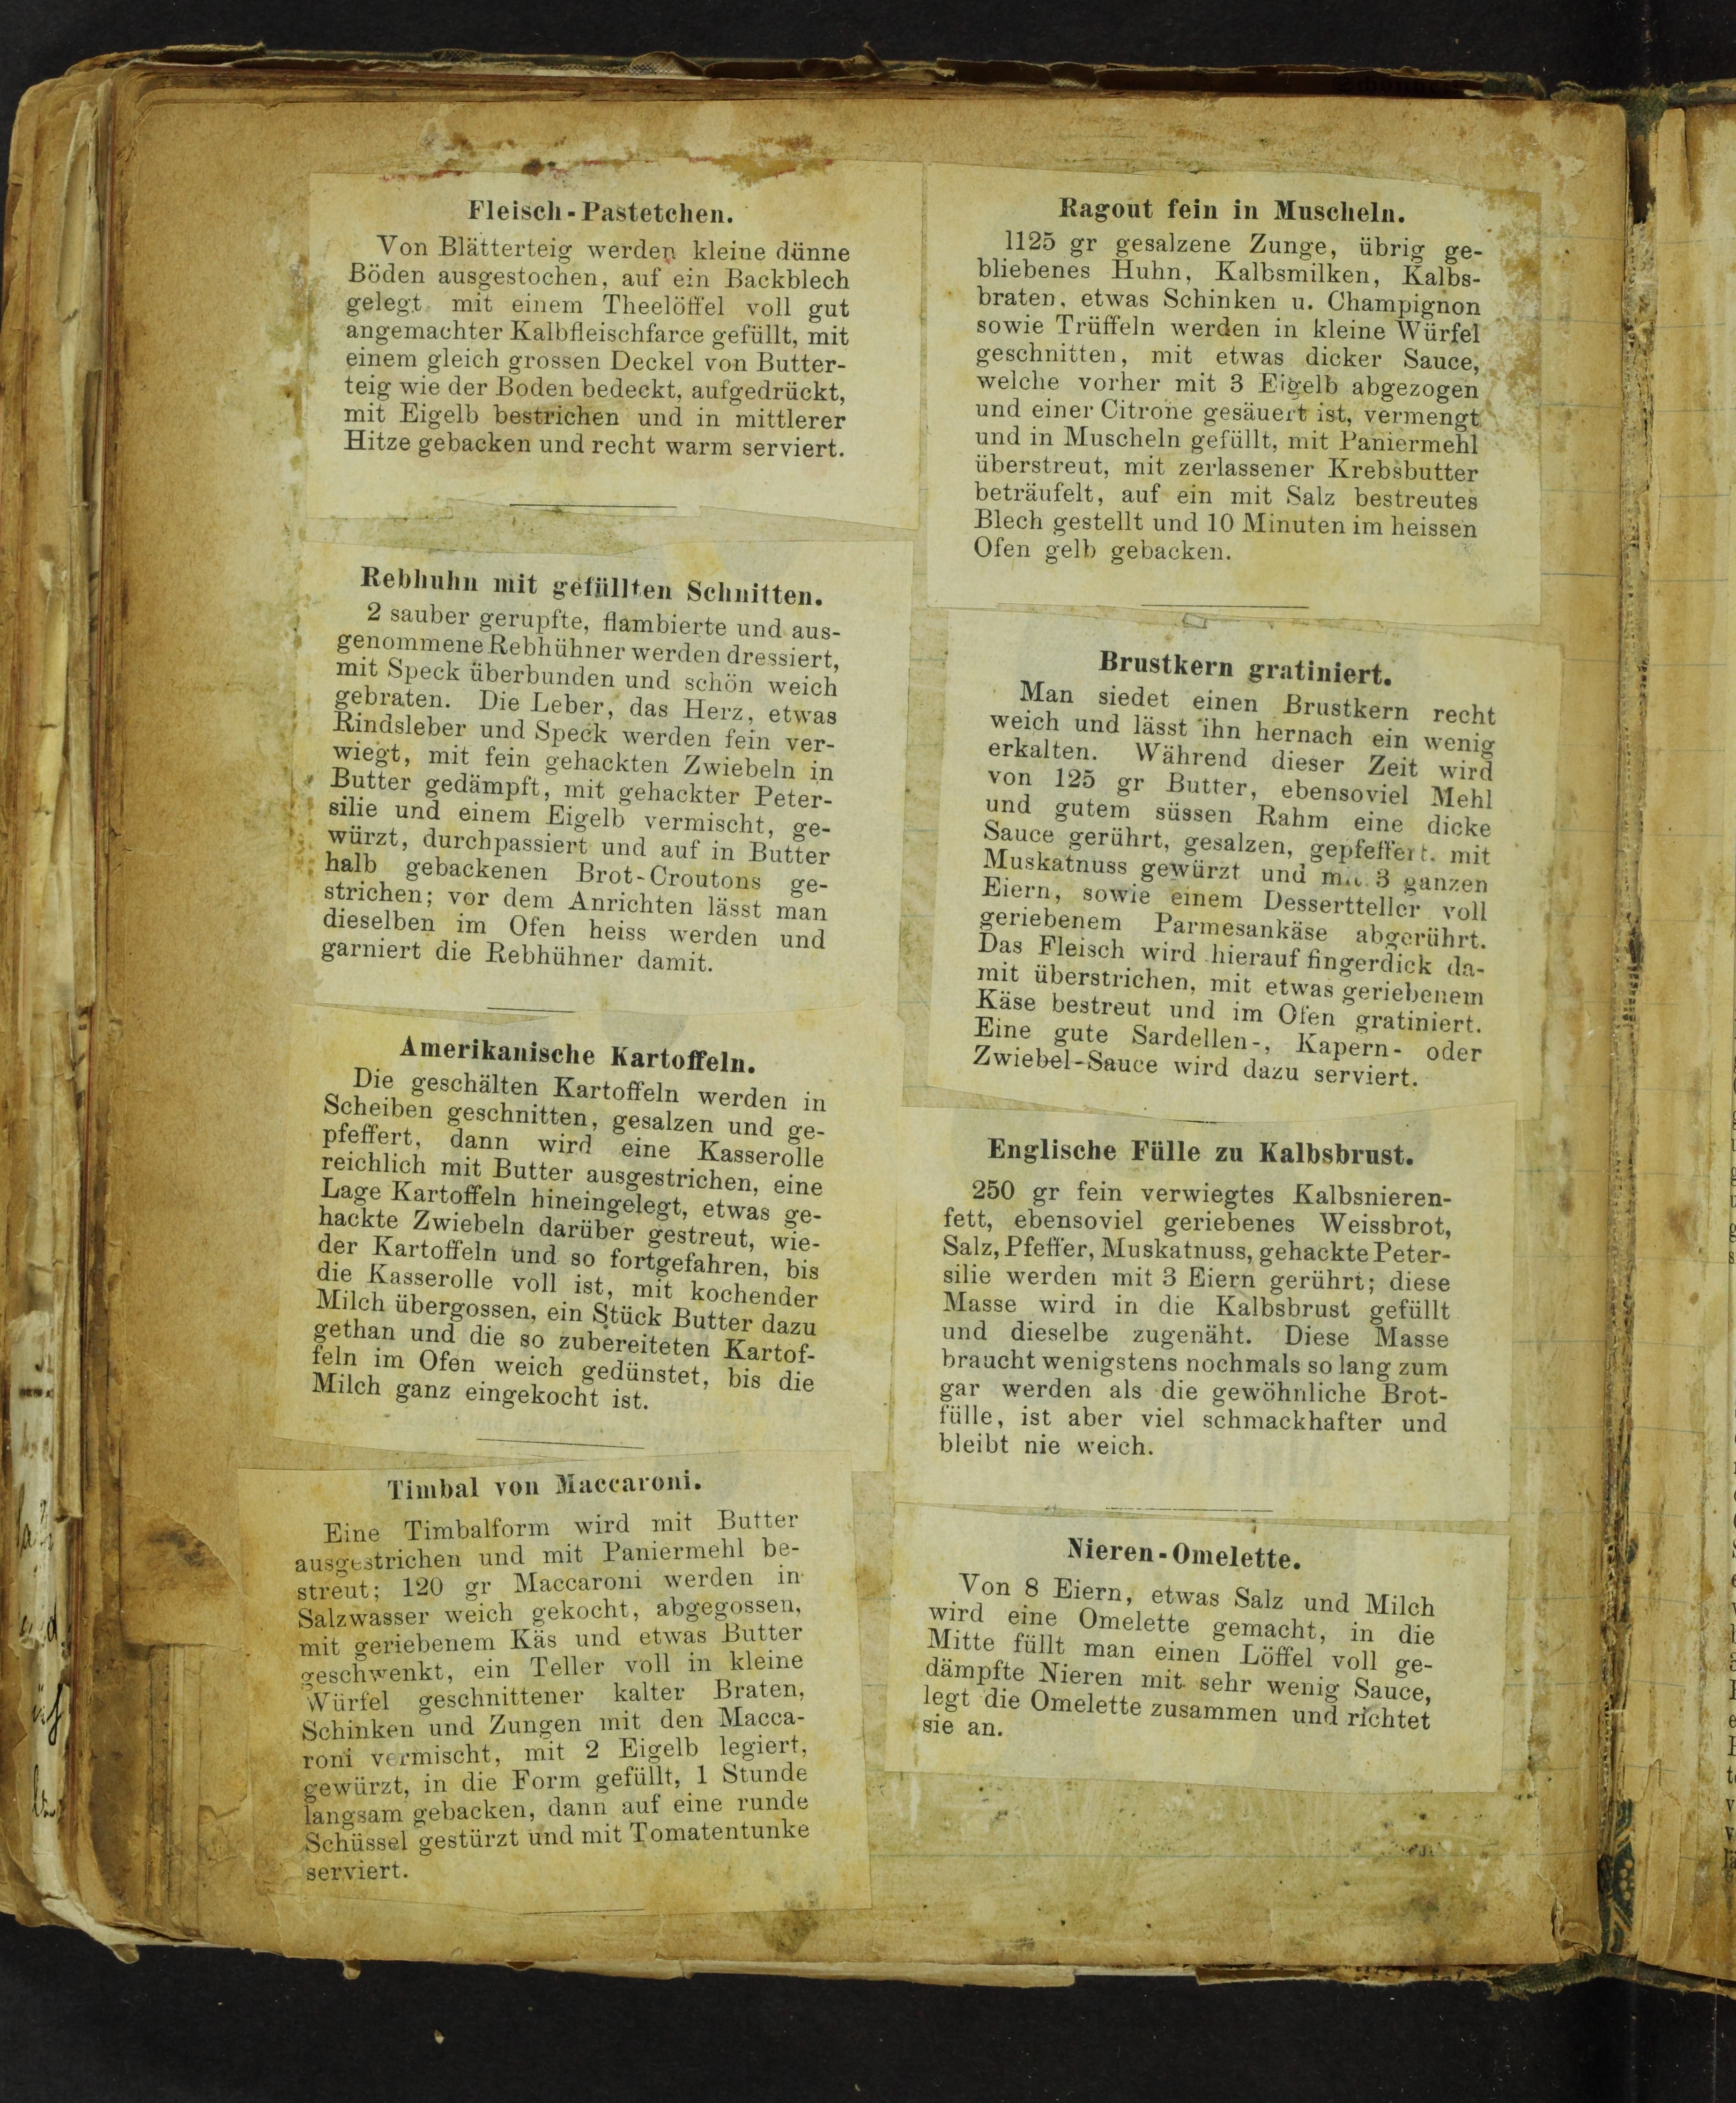 Fleisch-Pastetchen.
Von Blätterteig werden kleine dünne
Böden ausgestochen, auf ein Backblech
gelegt mit einem Theelöffel voll gut
angemachter Kalbfleischfarce gefüllt, mit
einem gleich grossen Deckel von Butter-
teig wie der Boden bedeckt, aufgedrückt,
mit Eigelb bestrichen und in mittlerer
Hitze gebacken und recht warm serviert.
Rebhuhn mit gefüllten Schnitten.
2 sauber gerupfte, flambierte und aus-
genommene Rebhühner werden dressiert,
mit Speck überbunden und schön weich
gebraten. Die Leber, das Herz, etwas
Rindsleber und Speck werden fein ver-
wiegt, mit fein gehackten Zwiebeln in
Butter gedämpft, mit gehackter Peter-
silie und einem Eigelb vermischt, ge-
würzt, durchpassiert und auf in Butter
halb gebackenen Brot-Croutons ge-
strichen; vor dem Anrichten lässt man
dieselben im Ofen heiss werden und
garniert die Rebhühner damit.
Amerikanische Kartoffeln.
Die geschälten Kartoffeln werden in
Scheiben geschnitten, gesalzen und ge-
pfeffert, dann wird eine Kasserolle
reichlich mit Butter ausgestrichen, eine
Lage Kartoffeln hineingelegt, etwas ge-
hackte Zwiebeln darüber gestreut, wie-
der Kartoffeln und so fortgefahren, bis
die Kasserolle voll ist, mit kochender
Milch übergossen, ein Stück Butter dazu
gethan und die so zubereiteten Kartof-
feln im Ofen weich gedünstet, bis die
Milch ganz eingekocht ist.
Timbal von Maccaroni.
Eine Timbalform wird mit Butter
ausgestrichen und mit Paniermehl be-
streut; 120 gr Maccaroni werden in
Salzwasser weich gekocht, abgegossen,
mit geriebenem Käs und etwas Butter
geschwenkt, ein Teller voll in kleine
Würfel geschnittener kalter Braten,
Schinken und Zungen mit den Macca-
roni vermischt, mit 2 Eigelb legiert,
gewürzt, in die Form gefüllt, 1 Stunde
langsam gebacken, dann auf eine runde
Schüssel gestürzt und mit Tomatentunke
serviert.
Ragout fein in Muscheln.
1125 gr gesalzene Zunge, übrig ge-
bliebenes Huhn, Kalbsmilken, Kalbs-
braten, etwas Schinken u. Champignon
sowie Trüffeln werden in kleine Würfel
geschnitten, mit etwas dicker Sauce,
welche vorher mit 3 Eigelb abgezogen
und einer Citrone gesäuert ist, vermengt
und in Muscheln gefüllt, mit Paniermehl
überstreut, mit zerlassener Krebsbutter
beträufelt, auf ein mit Salz bestreutes
Blech gestellt und 10 Minuten im heissen
Ofen gelb gebacken.
Brustkern gratiniert.
Man siedet einen Brustkern recht
weich und lässt ihn hernach ein wenig
erkalten. Während dieser Zeit wird
von 125 gr Butter, ebensoviel Mehl
und gutem süssen Rahm eine dicke
Sauce gerührt, gesalzen, gepfeffert, mit
Muskatnuss gewürzt und mit 3 ganzen
Eiern, sowie einem Dessertteller voll
geriebenem Parmesankäse abgerührt.
Das Fleisch wird hierauf fingerdick da-
mit überstrichen, mit etwas geriebenem
Käse bestreut und im Ofen gratiniert.
Eine gute Sardellen-, Kapern- oder
Zwiebel-Sauce wird dazu serviert.
Englische Fülle zu Kalbsbrust.
250 gr fein verwiegtes Kalbsnieren-
fett, ebensoviel geriebenes Weissbrot,
Salz, Pfeffer, Muskatnuss, gehackte Peter-
silie werden mit 3 Eiern gerührt; diese
Masse wird in die Kalbsbrust gefüllt
und dieselbe zugenäht. Diese Masse
braucht wenigstens nochmals so lang zum
gar werden als die gewöhnliche Brot-
fülle, ist aber viel schmackhafter und
bleibt nie weich.
Nieren-Omelette.
Von 8 Eiern, etwas Salz und Milch
wird eine Omelette gemacht, in die
Mitte füllt man einen Löffel voll ge-
dämpfte Nieren mit sehr wenig Sauce,
legt die Omelette zusammen und richtet
sie an.